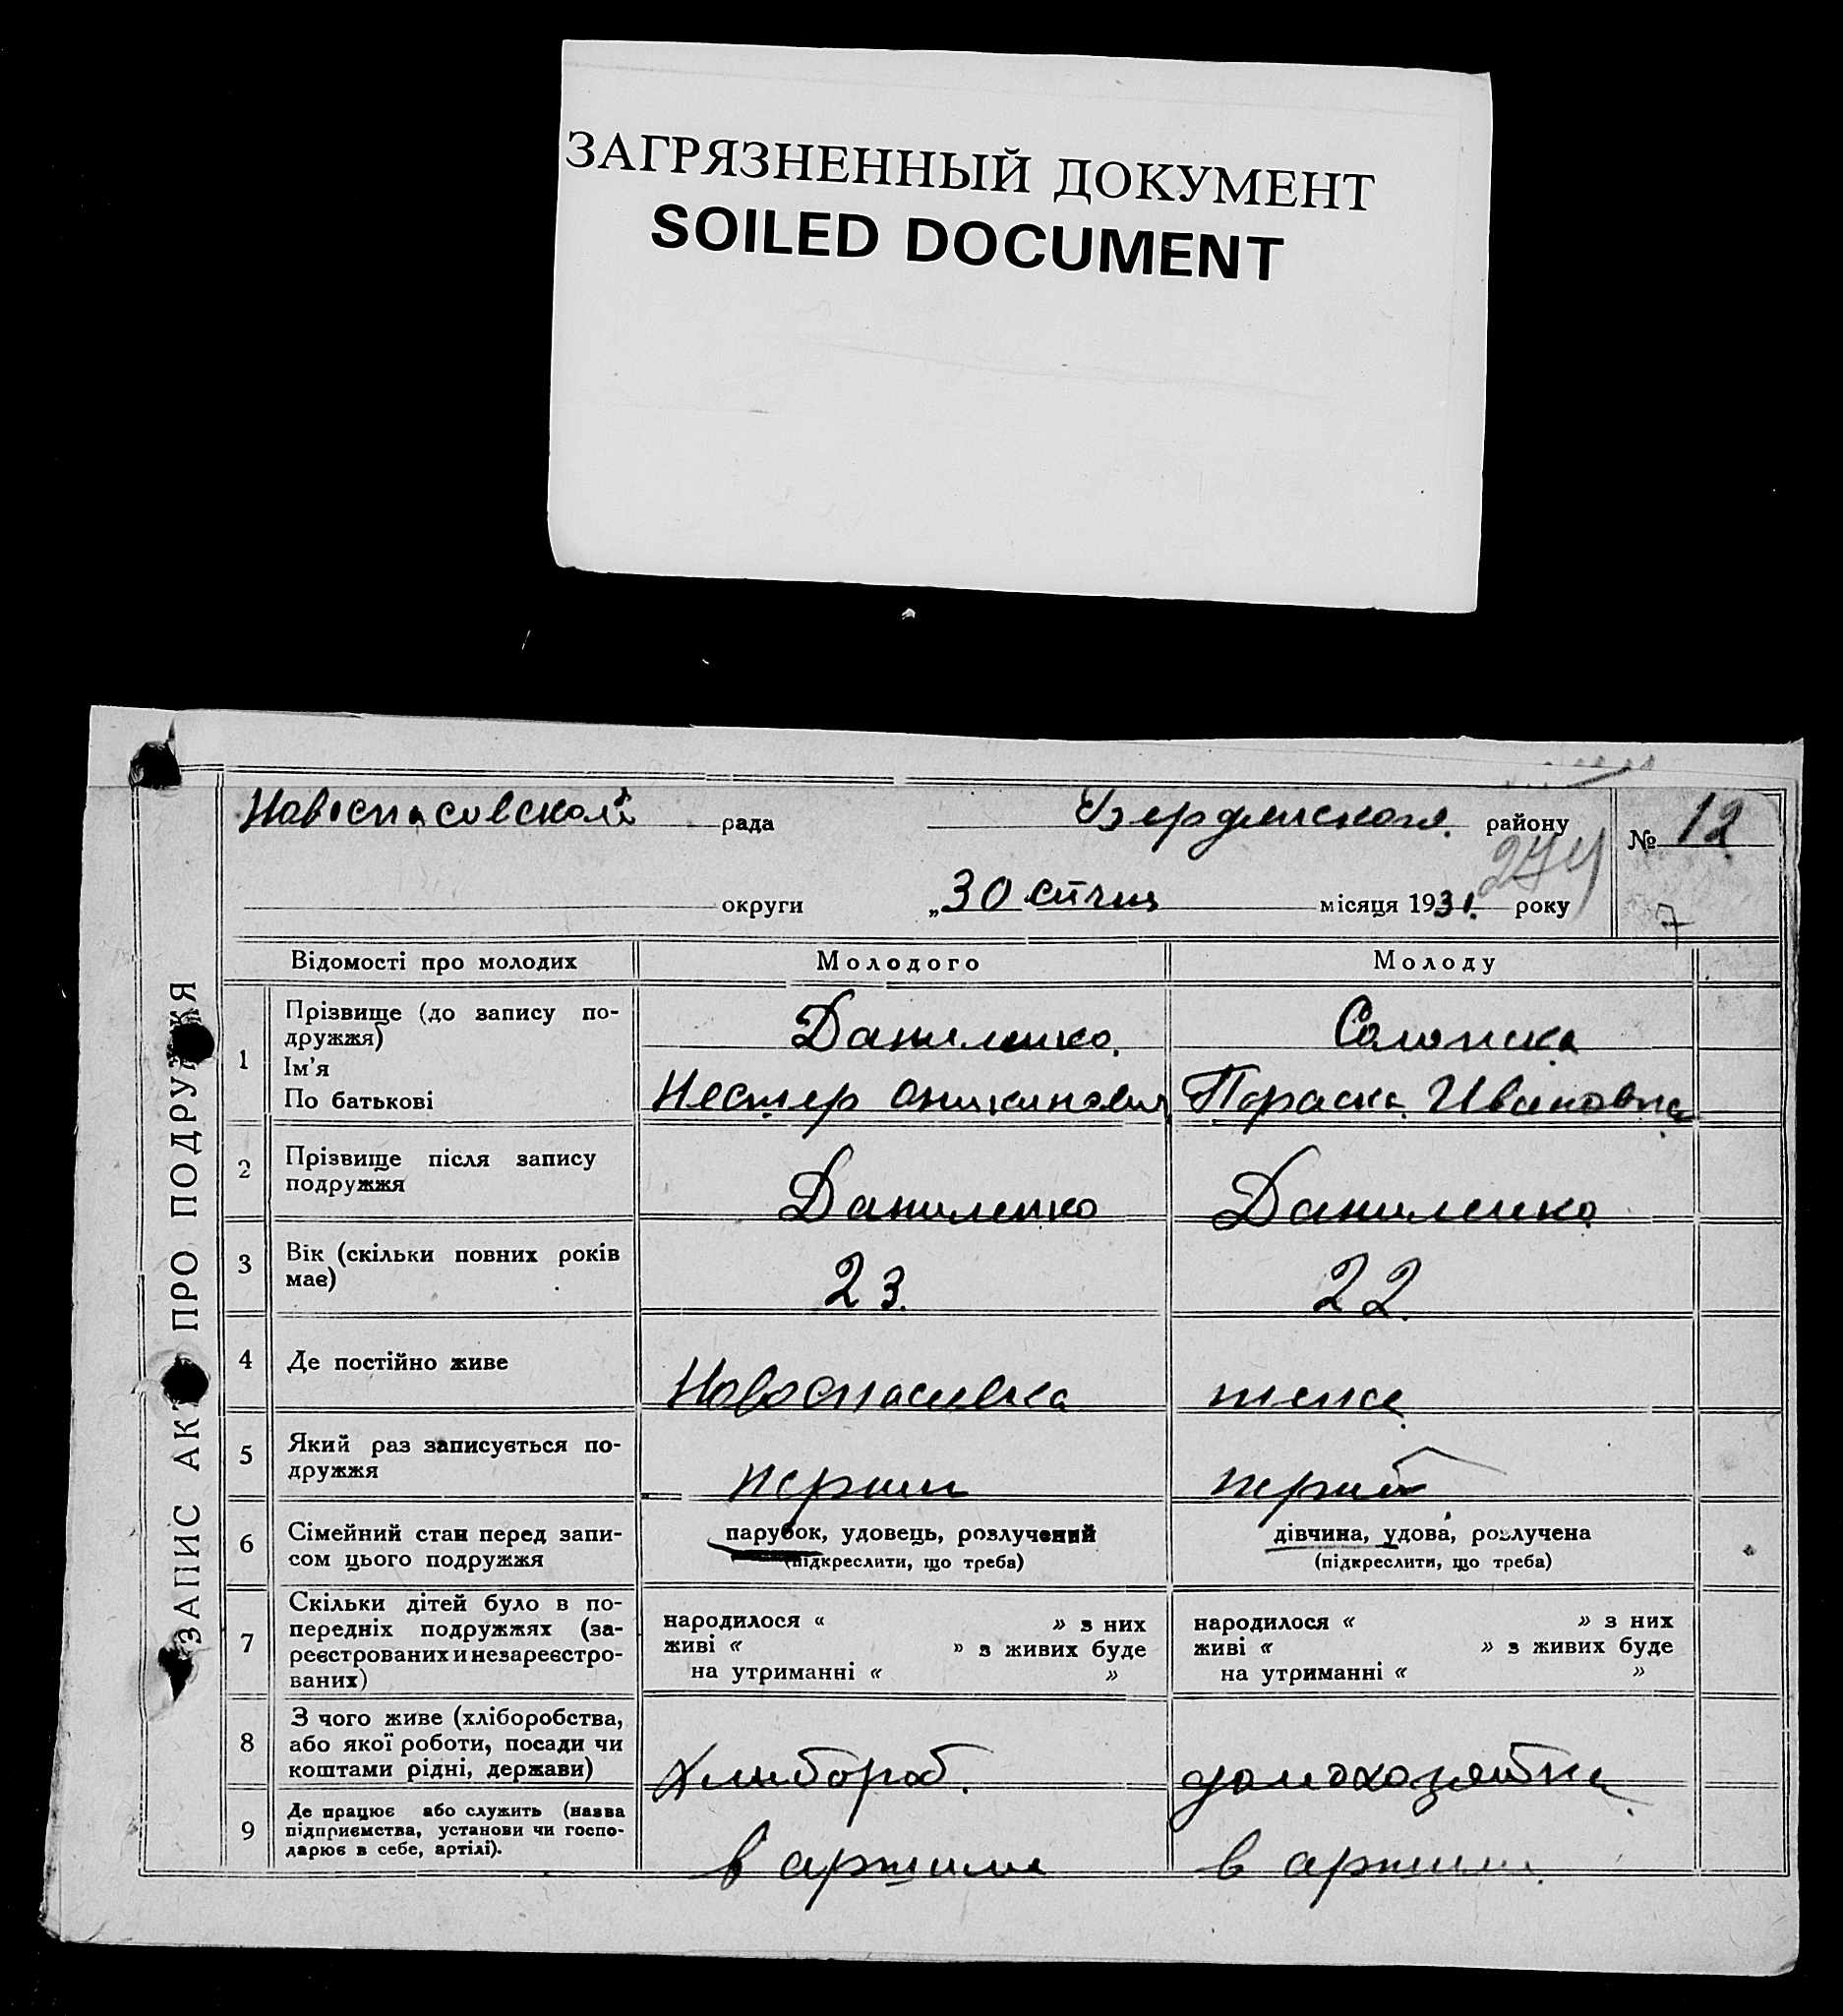 ЗАГРЯЗНЕННЫЙ ДОКУМЕНТ
SOILED DOCUMENT
ЗАПИС АКТ ПРО ПОДРУЖЖЯ
Новоспасовской рада Бердянского району № 12
274
округи „30 січня місяця 1931. року
7
Відомості про молодих Молодого Молоду
1 Прізвище (до запису по-
дружжя) Даниленко.
Ім'я
По батькові Нестер Параска Ивановна
2 Прізвище після запису
подружжя Даниленко Даниленко
3 Вік (скільки повних років
має) 23. 22.
4 Де постійно живе Новоспасивка теже
5 Який раз записується по-
дружжя перший перший
6 Сімейний стан перед запи-
сом цього подружжя
парубок, удовець, розлучений
(підкреслити, що треба)
дівчина, удова, розлучена
(підкреслити, що треба)
7 Скільки дітей було в по-
передніх подружжях (за-
реєстрованих и незареєстро-
ваних)
народилося « » з них
живі « » з живих буде
на утриманні « »
народилося « » з них
живі « » з живих буде
на утриманні « »
8 З чого живе (хліборобства,
або якої роботи, посади чи
коштами рідні, держави) Хлибороб. домохозяйка
9 Де працює або служить (назва
підприємства, установи чи госпо-
дарює в себе, артілі). в артили в артили